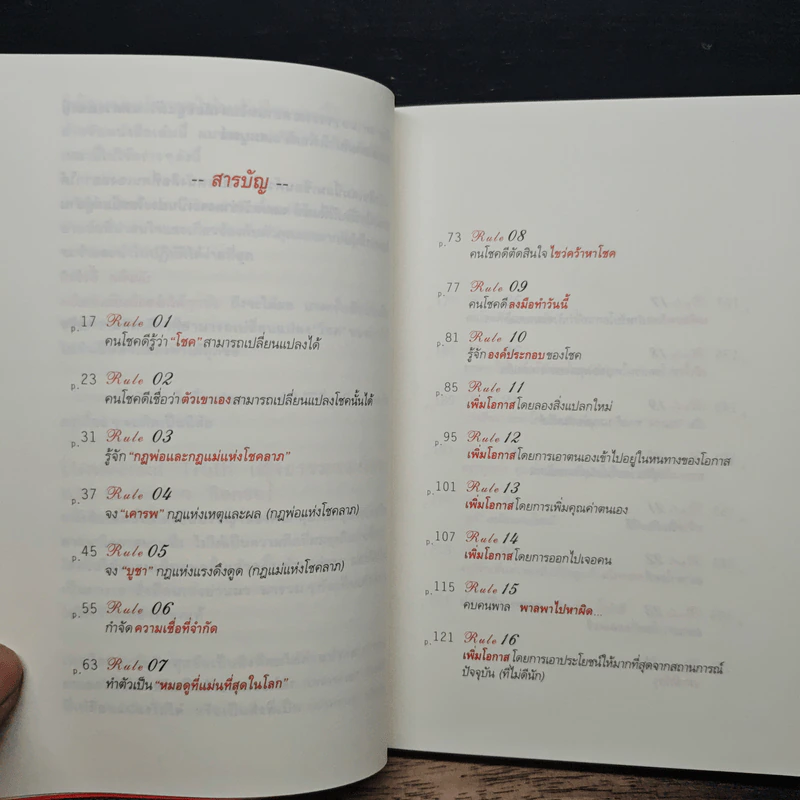 -- สารบัญ --
p.17 Rule 01
คนโชคดีรู้ว่า "โชค" สามารถเปลี่ยนแปลงได้
p.23 Rule 02
คนโชคดีเชื่อว่า ตัวเขาเอง สามารถเปลี่ยนแปลงโชคนั้นได้
p.31 Rule 03
รู้จัก "กฎพ่อและกฎแม่แห่งโชคลาภ"
p.37 Rule 04
จง "เคารพ" กฎแห่งเหตุและผล (กฎพ่อแห่งโชคลาภ)
p.45 Rule 05
จง "บูชา" กฎแห่งแรงดึงดูด (กฎแม่แห่งโชคลาภ)
p.55 Rule 06
กำจัด ความเชื่อที่จำกัด
p.63 Rule 07
ทำตัวเป็น "หมอดูที่แม่นที่สุดในโลก"
p.73 Rule 08
คนโชคดีตัดสินใจ ไขว่คว้าหาโชค
p.77 Rule 09
คนโชคดี ลงมือทำวันนี้
p.81 Rule 10
รู้จัก องค์ประกอบ ของโชค
p.85 Rule 11
เพิ่มโอกาส โดยลองสิ่งแปลกใหม่
p.95 Rule 12
เพิ่มโอกาส โดยการเอาตนเองเข้าไปอยู่ในหนทางของโอกาส
p.101 Rule 13
เพิ่มโอกาส โดยการเพิ่มคุณค่าตนเอง
p.107 Rule 14
เพิ่มโอกาส โดยการออกไปเจอคน
p.115 Rule 15
คบคนพาล พาลพาไปหาผิด...
p.121 Rule 16
เพิ่มโอกาส โดยการเอาประโยชน์ให้มากที่สุดจากสถานการณ์
ปัจจุบัน (ที่ไม่ดีนัก)